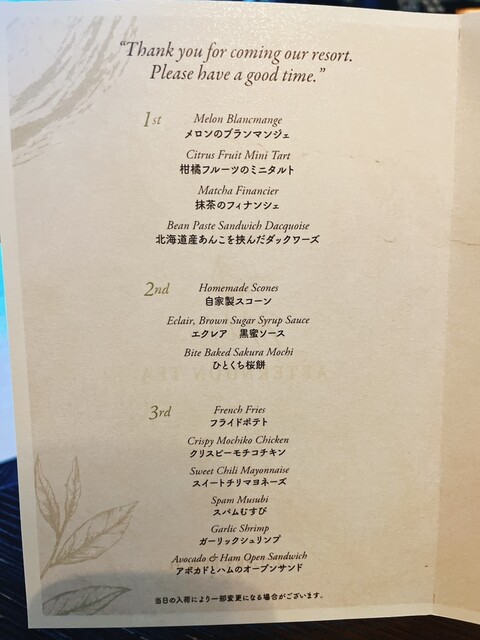 “Thank you for coming our resort.
Please have a good time.”
1st
Melon Blancmange
メロンのブランマンジェ
Citrus Fruit Mini Tart
柑橘フルーツのミニタルト
Matcha Financier
抹茶のフィナンシェ
Bean Paste Sandwich Dacquoise
北海道産あんこを挟んだダックワーズ
2nd
Homemade Scones
自家製スコーン
Eclair, Brown Sugar Syrup Sauce
エクレア　黒蜜ソース
Bite Baked Sakura Mochi
ひとくち桜餅
3rd
French Fries
フライドポテト
Crispy Mochiko Chicken
クリスピーモチコチキン
Sweet Chili Mayonnaise
スイートチリマヨネーズ
Spam Musubi
スパムむすび
Garlic Shrimp
ガーリックシュリンプ
Avocado & Ham Open Sandwich
アボカドとハムのオープンサンド
当日の入荷により一部変更になる場合がございます。